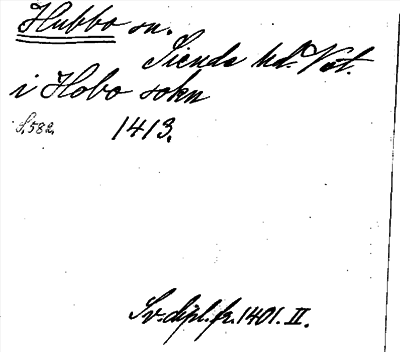 Hubbo sn.
Siende hd. Vst.
i Hobo sokn
S. 582. 1413.
Sv. dipl. fr. 1401. II.